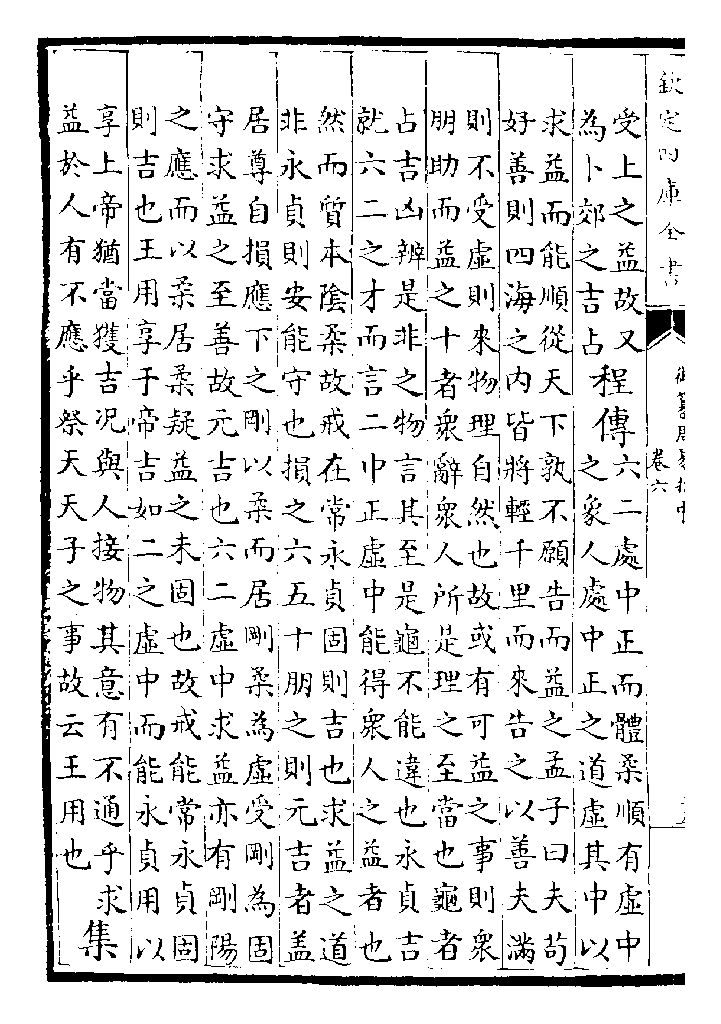 欽定四庫全書
御纂周易折中
卷六
受上之益故又
為卜郊之吉占
程傳
六二處中正而體柔順有虛中
之象人處中正之道虛其中以
求益而能順從天下孰不願告而益之孟子曰夫苟
好善則四海之內皆將輕千里而來告之以善夫滿
則不受虛則來物理自然也故或有可益之事則衆
朋助而益之十者衆辭衆人所是理之至當也龜者
占吉凶辨是非之物言其至是龜不能違也永貞吉
就六二之才而言二中正虛中能得衆人之益者也
然而質本陰柔故戒在常永貞固則吉也求益之道
非永貞則安能守也損之六五十朋之則元吉者蓋
居尊自損應下之剛以柔而居剛柔為虛受剛為固
守求益之至善故元吉也六二虛中求益亦有剛陽
之應而以柔居柔疑益之未固也故戒能常永貞固
則吉也王用享于帝吉如二之虛中而能永貞用以
享上帝猶當獲吉况與人接物其意有不通乎求
益於人有不應乎祭天天子之事故云王用也
集